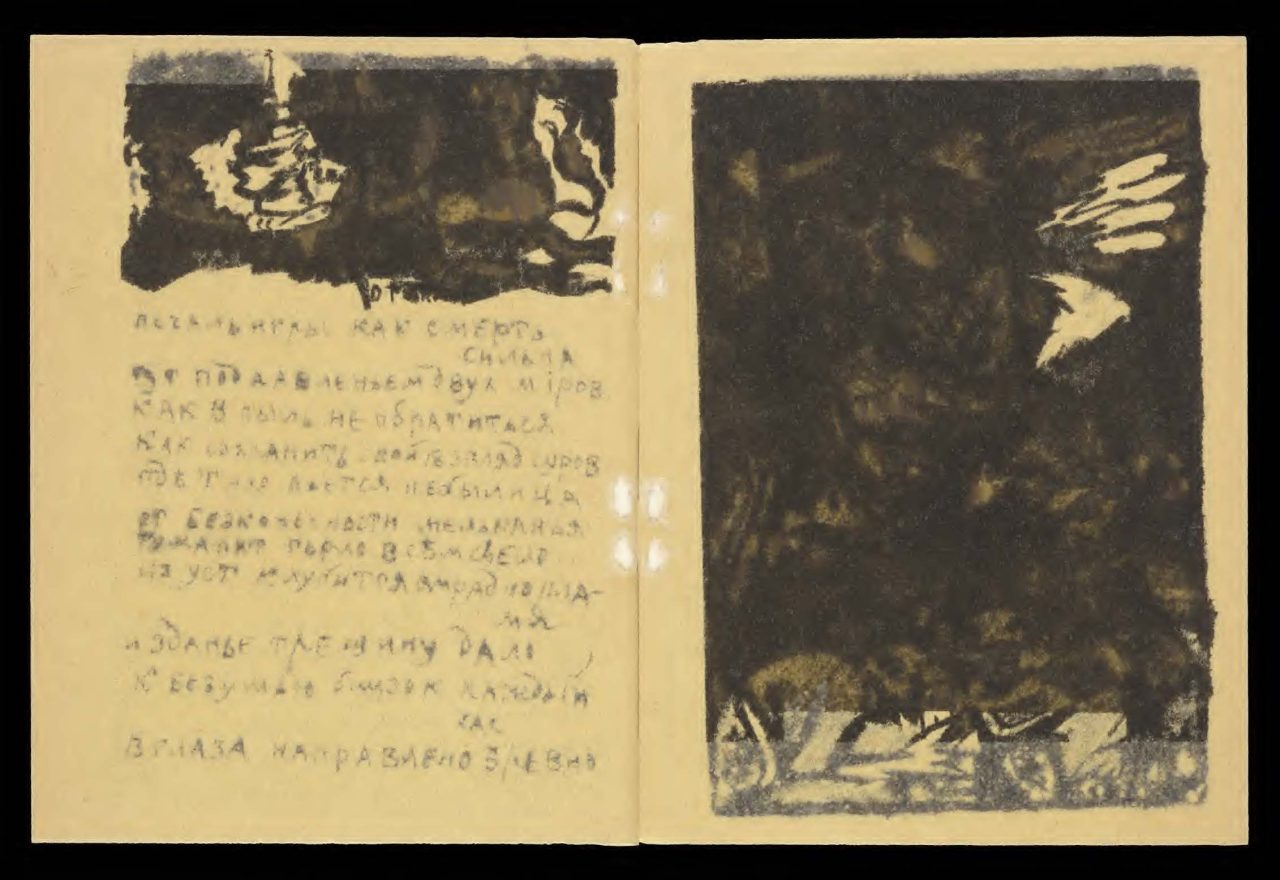 ПЕЧАЛЬ ИГРЫ КАК СМЕРТЬ
СИЛЬНА
ПОД ДАВЛЕНЬЕМ ДВУХ МІРОВ
КАК В ПЫЛЬ НЕ ОБРАТИТЬСЯ
КАК СОХРАНИТЬ СВОЙ ВЗГЛЯД СУРОВ
ГДЕ ТИХО ВЬЕТСЯ НЕБЫЛИЦА
ОТ БЕЗКОНЕЧНОСТИ МЕЛЬКАНЬЯ
ТУМАНИТ ГОРЛО ВСѢМ СВЕЛО
ИЗ УСТ КЛУБИТСЯ СМРАДНО ПЛА-
МЯ
И ЗДАНЬЕ ТРЕЩИНУ ДАЛО
К БЕЗУМЬЮ БЛИЗОК КАЖДЫЙ
ЧАС
В ГЛАЗА НАПРАВЛЕНО БРЕВНО